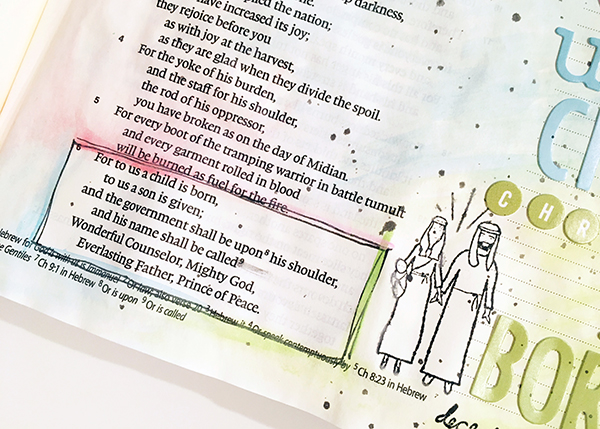 the nation;
have increased its joy;
they rejoice before you
as with joy at the harvest,
as they are glad when they divide the spoil.
4 For the yoke of his burden,
and the staff for his shoulder,
the rod of his oppressor,
you have broken as on the day of Midian.
5 For every boot of the tramping warrior in battle tumult
and every garment rolled in blood
will be burned as fuel for the fire.
6 For to us a child is born,
to us a son is given;
and the government shall be upon8 his shoulder,
and his name shall be called9
Wonderful Counselor, Mighty God,
Everlasting Father, Prince of Peace.
5 Ch 8:23 in Hebrew
Gentiles 7 Ch 9:1 in Hebrew 8 Or is upon 9 Or is called
CHR
BOR